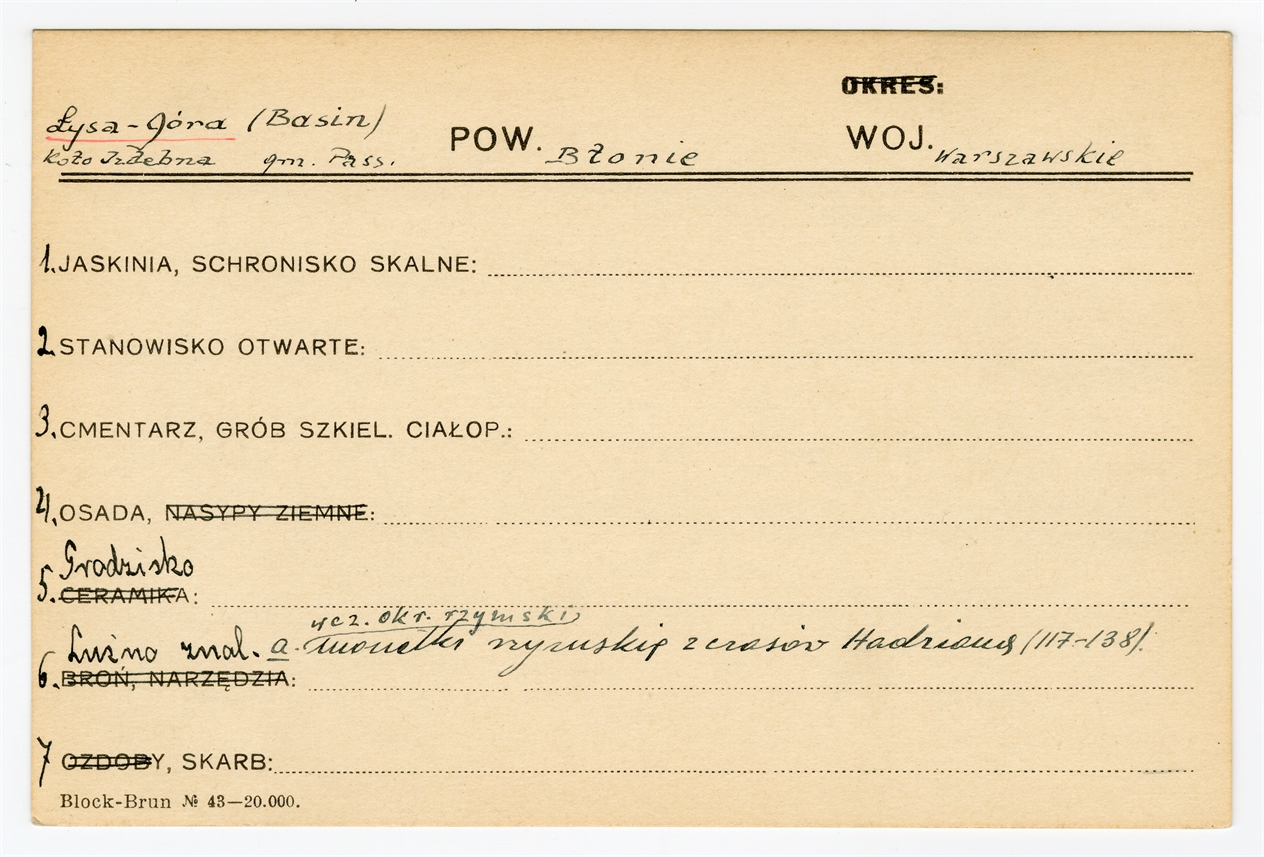 OKRES:
Łysa-Góra (Basin) POW. Błonie WOJ. Warszawskie
koło Izdebna gm. Pass.
1. JASKINIA, SCHRONISKO SKALNE:
2. STANOWISKO OTWARTE:
3. CMENTARZ, GRÓB SZKIEL. CIAŁOP.:
4. OSADA, NASYPY ZIEMNE:
Grodzisko
5. CERAMIKA:
wcz. okr. rzymski
Luźno znal. a. monetki rzymskie z czasów Hadriana (117-138).
6. BROŃ, NARZĘDZIA:
7 OZDOBY, SKARB:
Block-Brun № 43—20.000.